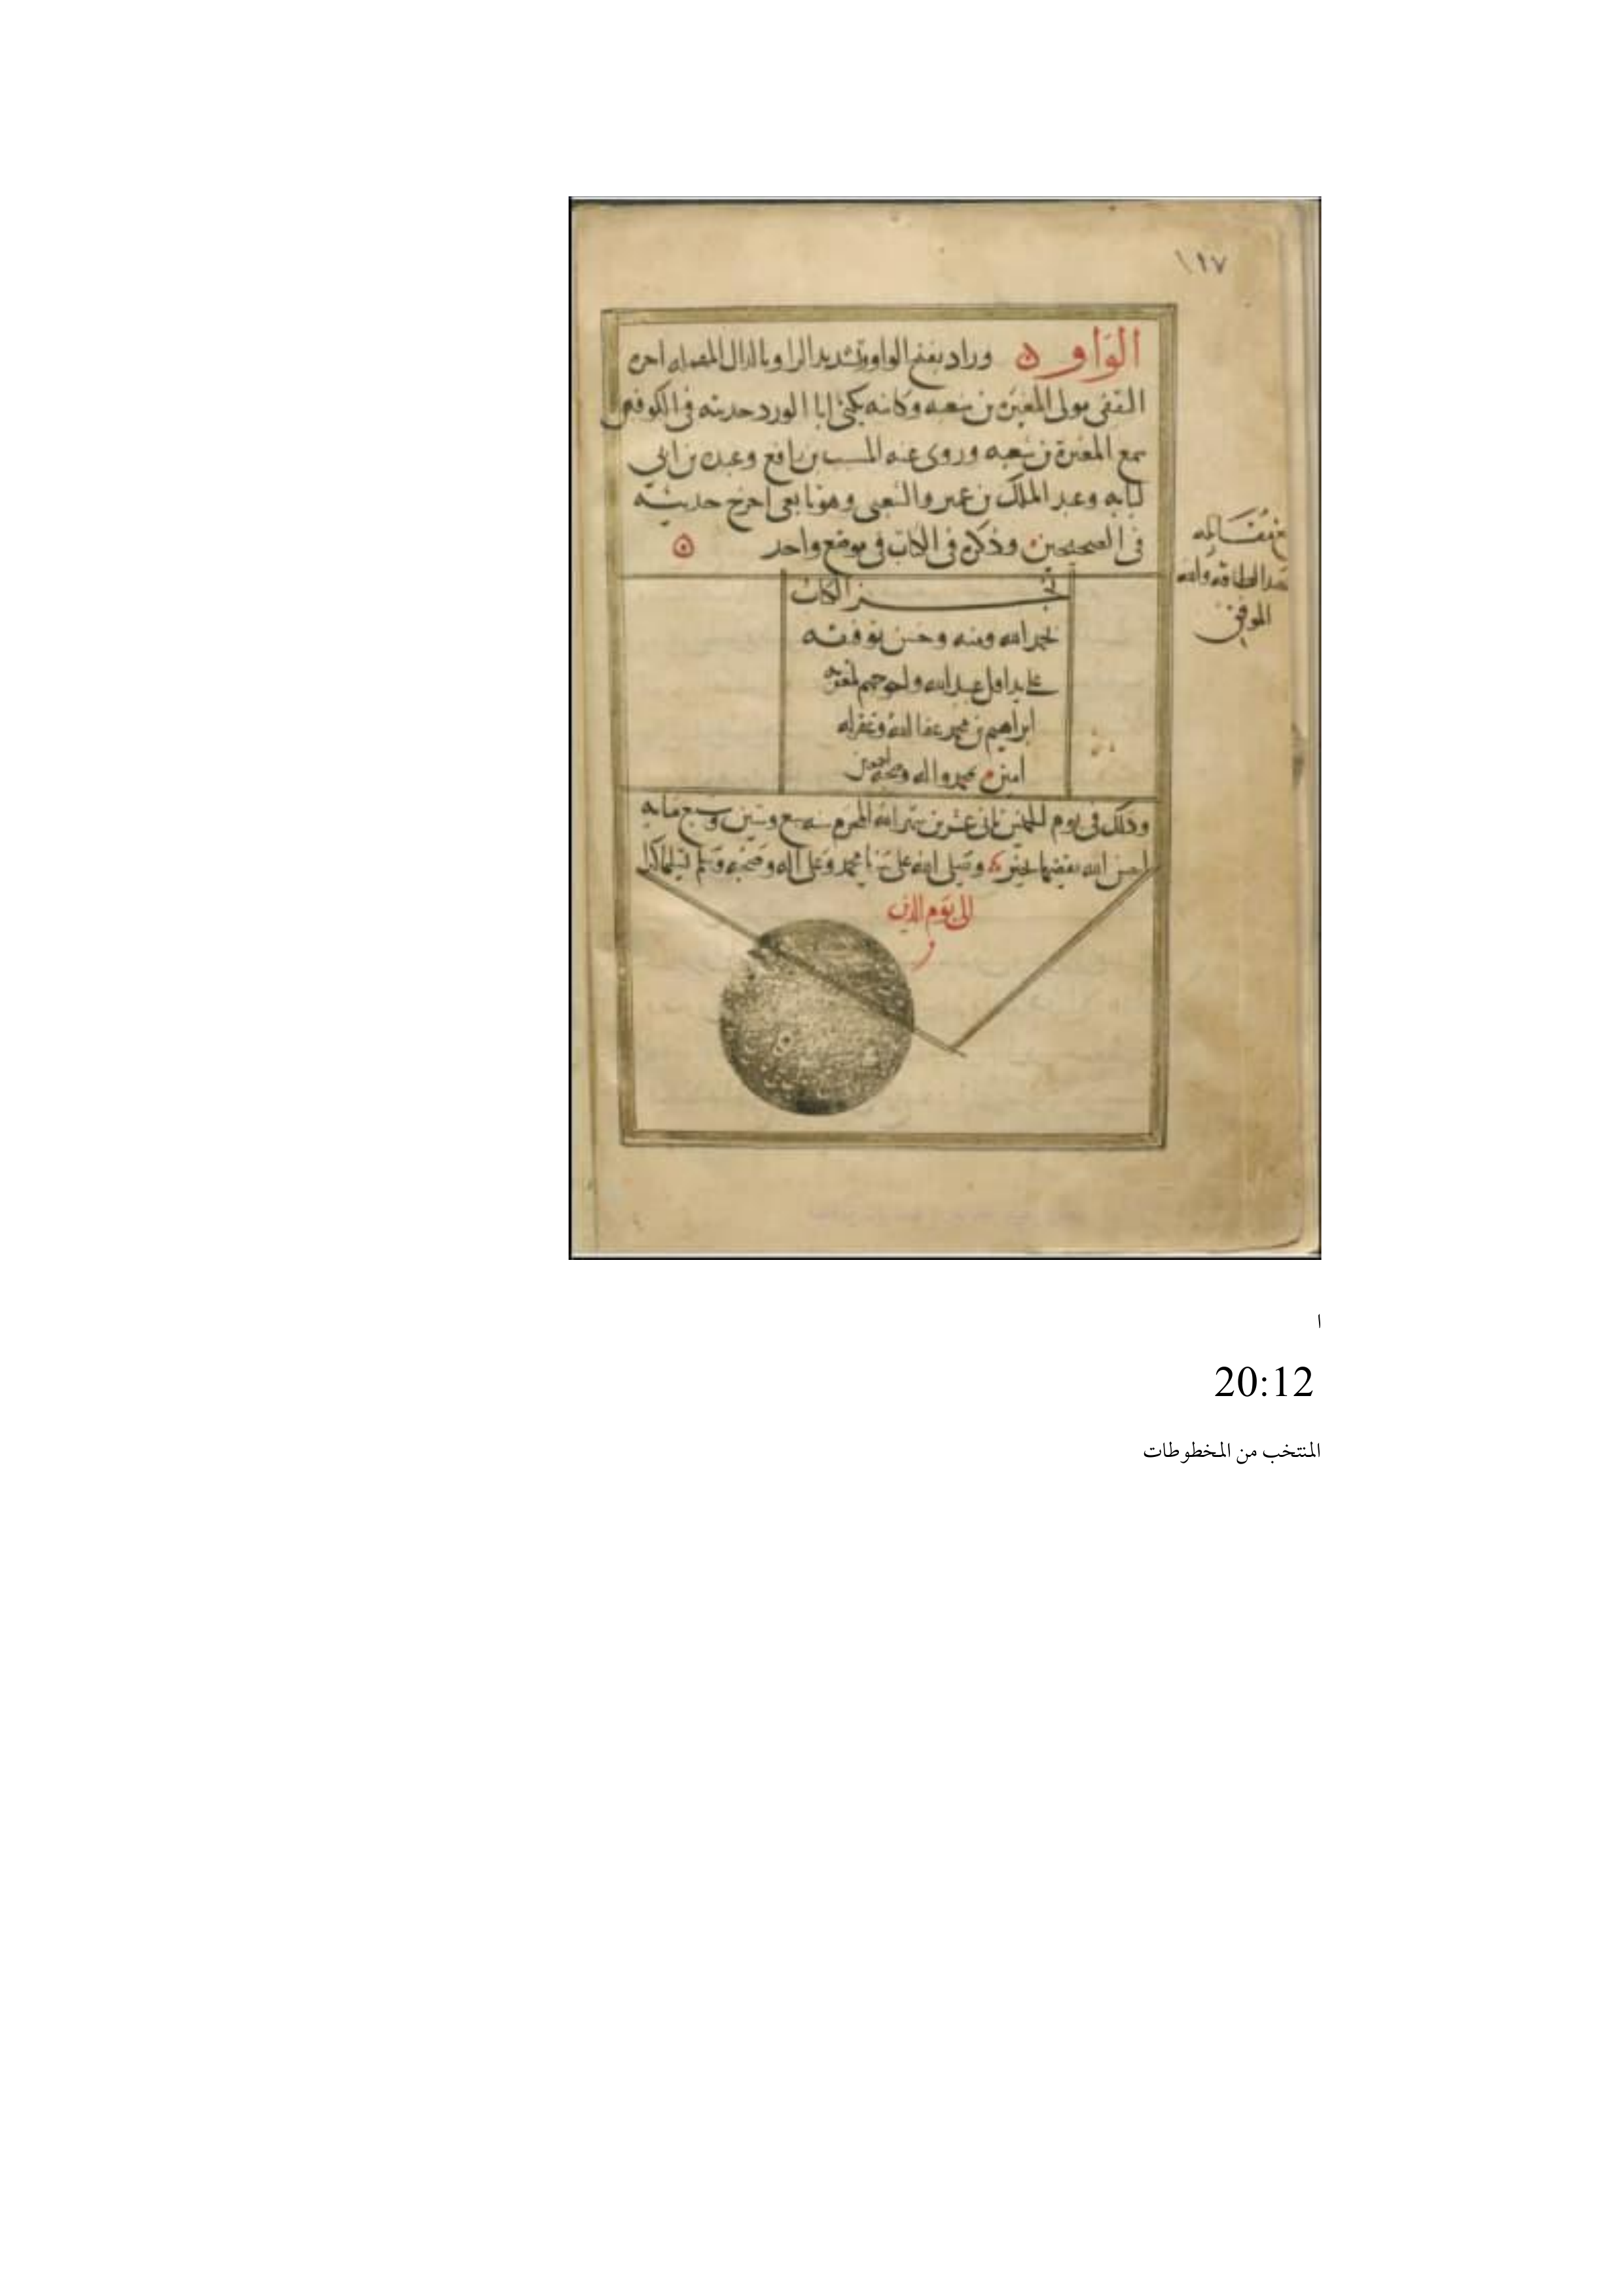 ١٩٧
الواو وراد بفتح الواو وتشديد الرا وبالدال المهمله اخره
الثقفى مولى المغيرة بن شعبه وكاتبه يكنى ابا الورد حديثه فى الكوفيين
سمع المغيرة بن شعبه وروى عنه المسيب بن رافع وعبدة بن ابي
لبابه وعبد الملك بن عمير والشعبى وهو تابعى اخرج حديثه
فى الصحيحين وذكره فى الكتاب فى موضع واحد
نجز الكتاب
بحمد الله ومنه وحسن توفيقه
على يد اقل عبيد الله واحوجهم لمغفرته
ابراهيم بن محمد عفا الله وغفر له
امين بمحمد واله وصحبه اجمعين
وذلك فى يوم الخميس ثانى عشرين شهر الله المحرم سنه سبع وستين وسبع مايه
احسن الله تقضيها بخير وصلى الله على سيدنا محمد وعلى اله وصحبه وسلم تسليما كثيرا
الى يوم الدين
بلغ مقابله
الطاقه والله
الموفق
ا
20:12
المنتخب من المخطوطات